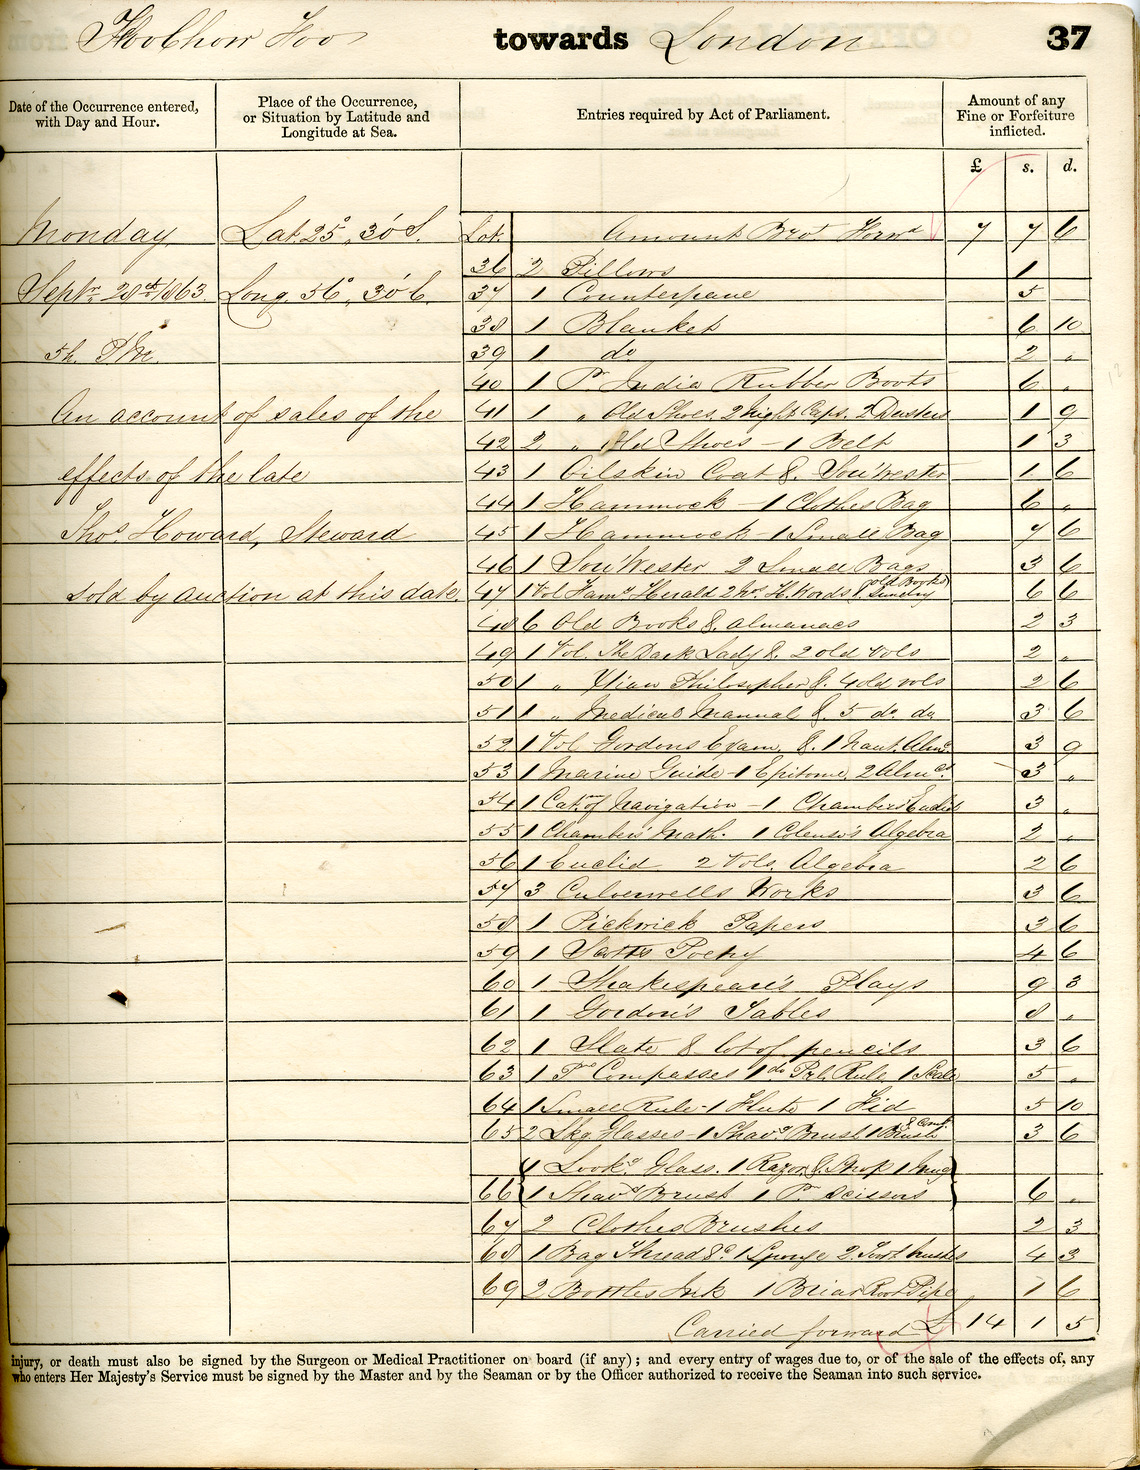 FooChow Foo towards London 37
Date of the Occurrence entered, with Day and Hour.
Place of the Occurrence, or Situation by Latitude and Longitude at Sea.
Entries required by Act of Parliament.
Amount of any Fine or Forfeiture inflicted.
£ s. d.
Monday
Septr 28th/1863
5h. P.M.
An account of sales of the
effects of the late
Thos. Howard, Steward
sold by auction at this date.
Lat. 25° 30' S.
Long. 56° 30' E.
Lot. Amount Brot. Forwd 7 7 6
36 2 Pillows 1
37 1 Counterpane 5
38 1 Blanket 6 10
39 1 do 2 "
40 1 Pr India Rubber Boots 6 "
41 1 " Old Shoes, 2 Night Caps, 2 Dusters 1 9
42 2 " Old Shoes - 1 Belt 1 3
43 1 Oilskin Coat & Sou'Wester 1 6
44 1 Hammock - 1 Clothes Bag 6 "
45 1 Hammock - 1 Small Bag 7 6
46 1 Sou'Wester 2 Small Bags 3 6
47 1 Vol Famy Herald 2 nos. H. Words & Sundry old Books 6 6
48 6 Old Books & Almanacs 2 3
49 1 Vol. The Dark Lady & 2 old Vols 2 "
50 1 " Philosopher & 4 old vols 2 6
51 1 " Medical Manual & 5 do. do 3 6
52 1 Vol Gordons Exam. & 1 Naut. Almc. 3 9
53 1 Marine Guide - 1 Epitome, 2 Almcs. 3 "
54 1 Catm of Navigation - 1 Chambers' Euclid 3 "
55 1 Chambers' Math. 1 Colenso's Algebra 2 "
56 1 Euclid 2 Vols. Algebra 2 6
57 3 Culverwells Works 3 6
58 1 Pickwick Papers 3 6
59 1 Scotts Poetry 4 6
60 1 Shakespeare's Plays 9 3
61 1 Gordon's Tables 8 "
62 1 Slate & lot of pencils 3 6
63 1 Pr Compasses 1 do Prl. Rule 1 Scale 5 "
64 1 Small Rule - 1 Flute 1 Fid 5 10
65 2 Lkg Glasses - 1 Shavg Brush 1 Brush & Comb 3 6
1 Lookg Glass. 1 Razor & Strop 1 Mug
66 1 Shavg Brush 1 Pr Scissors 6 "
67 2 Clothes Brushes 2 3
68 1 Bag Thread &c. 1 Sponge 2 Tooth brushes 4 3
69 2 Bottles Ink 1 Briar Root Pipe 1 6
Carried forward £ 14 1 5
injury, or death must also be signed by the Surgeon or Medical Practitioner on board (if any); and every entry of wages due to, or of the sale of the effects of, any
who enters Her Majesty's Service must be signed by the Master and by the Seaman or by the Officer authorized to receive the Seaman into such service.